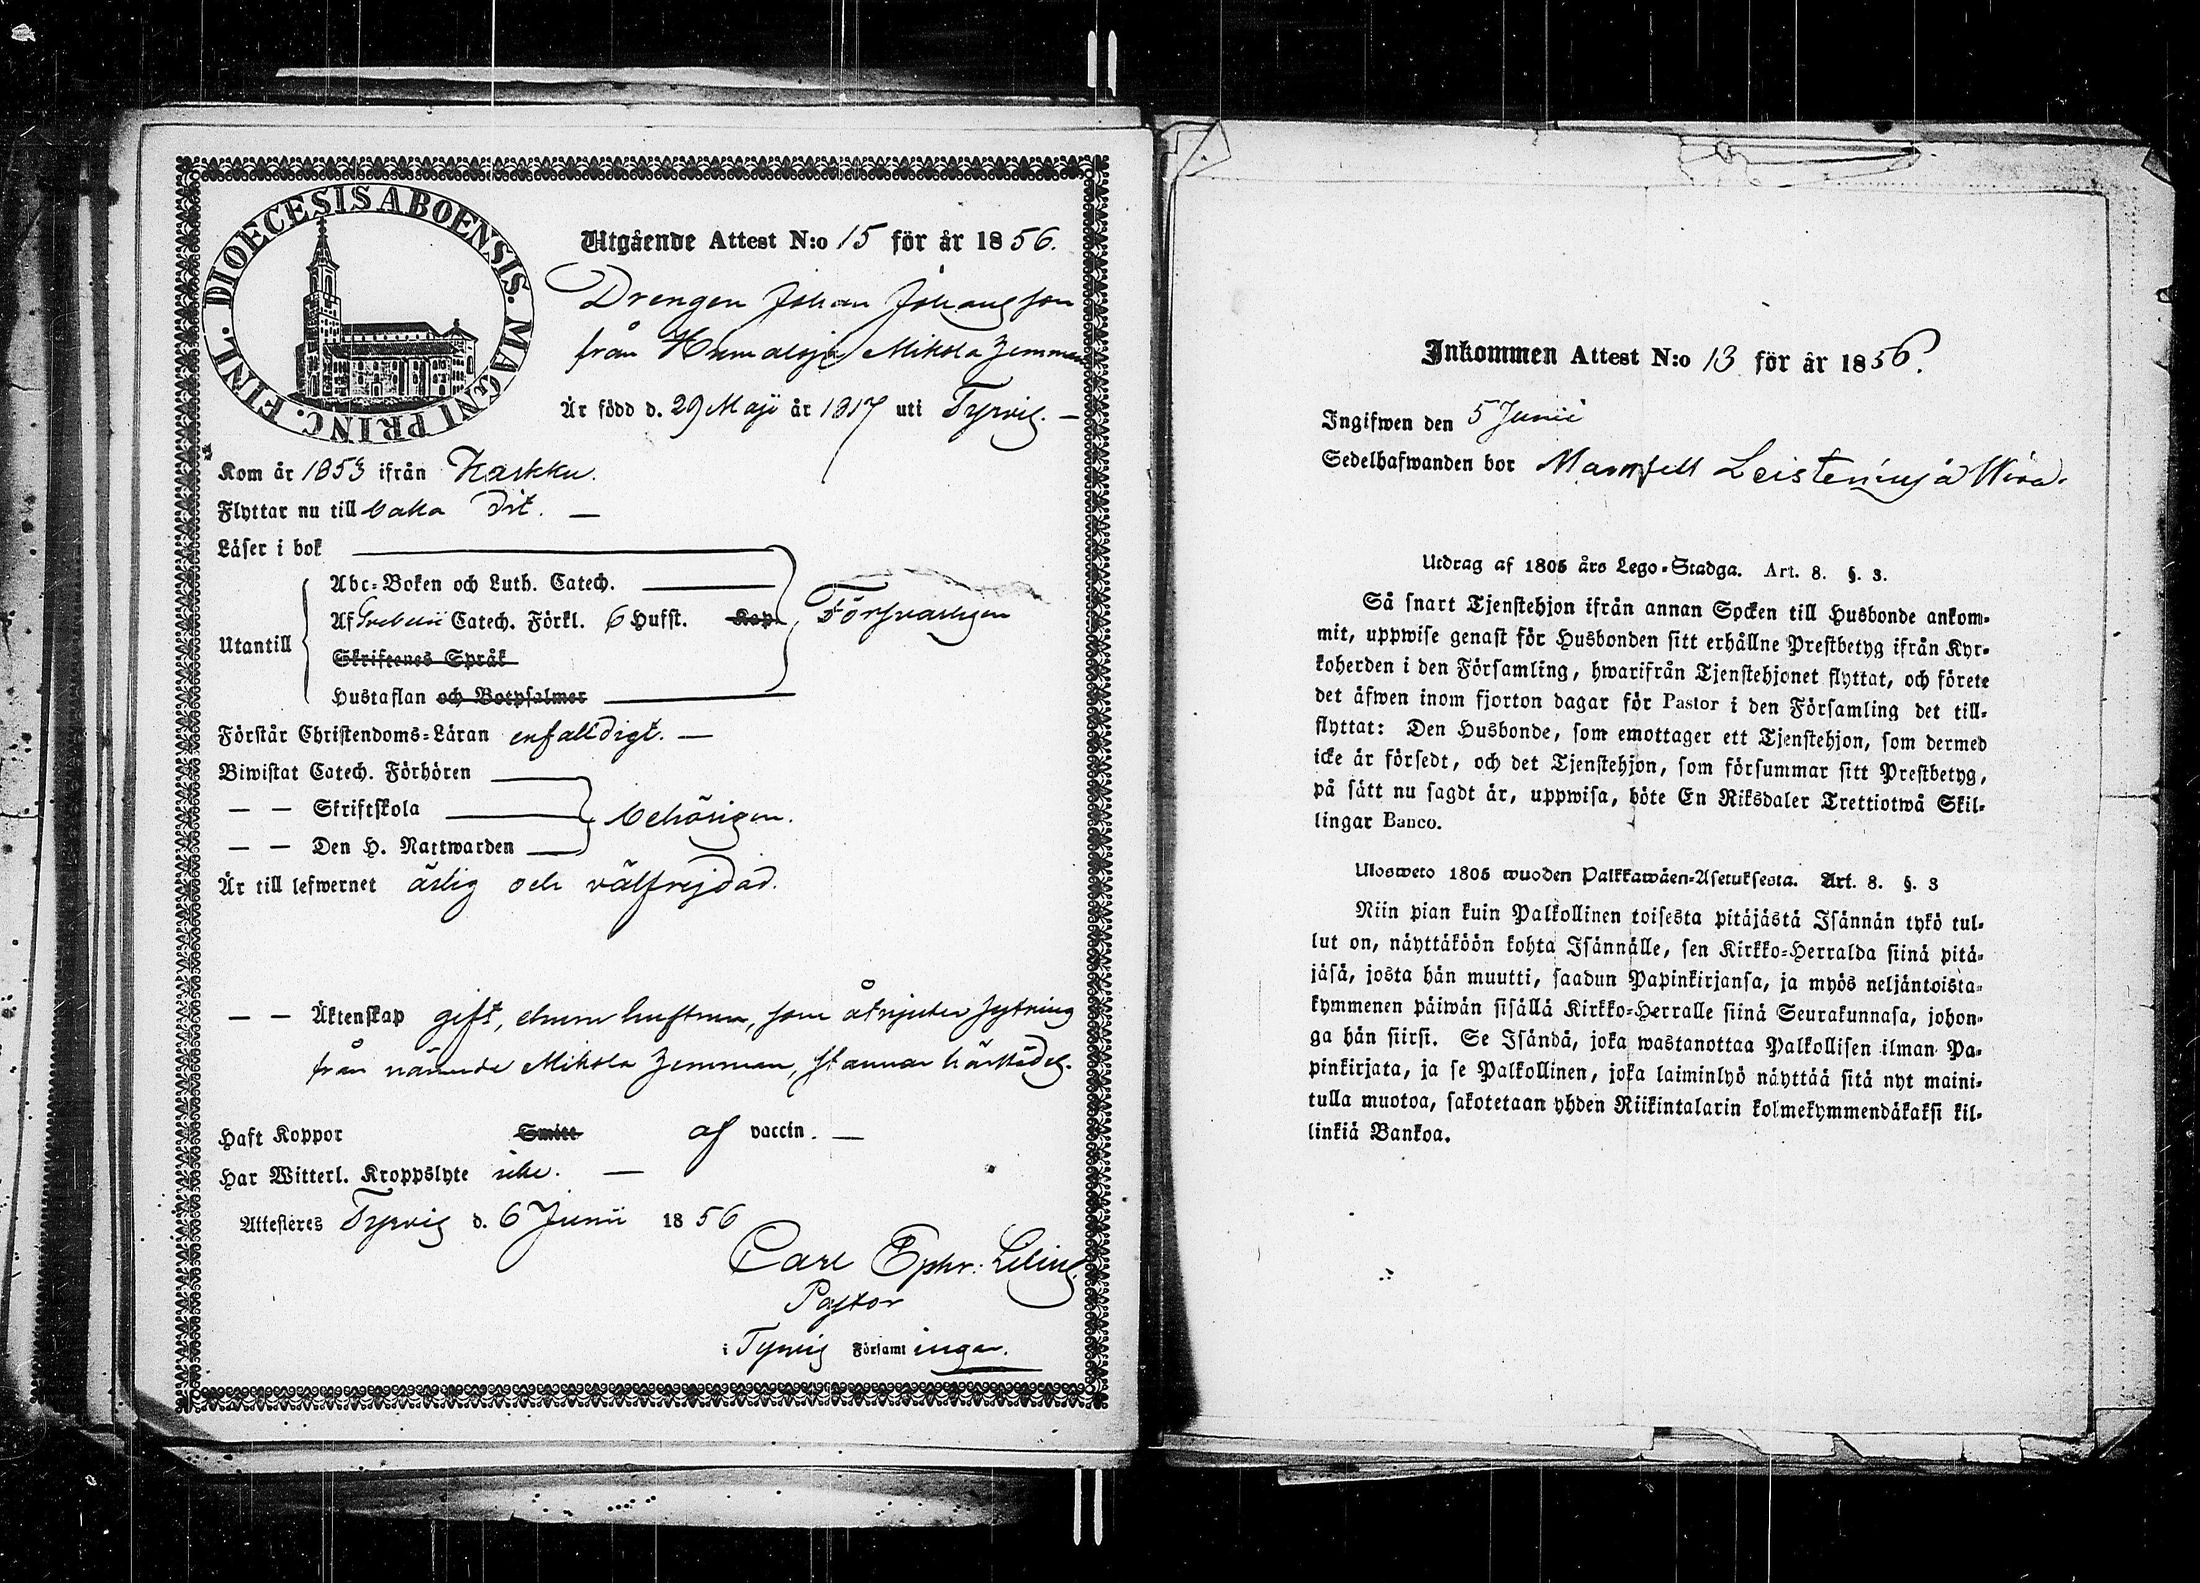 DIOECESIS ABOENSIS. MAGNI PRINC. FINL.
Utgående Attest N:o 15 för år 1856.
Drengen Johan Johansson
från Humaloja Mikola hemman
Är född d. 29 Maji år 1817 uti Tyrvis. —
Kom år 1853 ifrån Karkku.
Flyttar nu till baka dit. —
Läser i bok
Abc-Boken och Luth. Catech.
Utantill
Af Svebelii Catech. Förkl. 6 Hufst. Kap. Försvarligen
Skriftenes Språk
Hustaflan och Botpsalmer
Förstår Christendoms-Läran enfaldigt. —
Biwistat Catech. Förhören
— — Skriftskola behörigen.
— — Den H. Nattwarden
Är till lefwernet ärlig och välfrejdad.
— — Äktenskap gift, hustrun, som åtnjuter sytning
från nämnde Mikola hemman, stannar härstädes.
Haft Koppor Smitt af vaccin. —
Har Witterl. Kroppslyte icke. —
Attesteres Tyrvis d. 6 Junii 1856
Carl Ephr: Lilius
Pastor
i Tyrvis Församlingar.
Inkommen Attest N:o 13 för år 1856.
Ingifwen den 5 Junii
Sedelhafwanden bor Leisteniusjä
Utdrag af 1805 års Lego-Stadga. Art. 8. §. 3.
Så snart Tjenstehjon ifrån annan Socken till Husbonde ankom-
mit, uppwise genast för Husbonden sitt erhållne Prestbetyg ifrån Kyr-
koherden i den Församling, hwarifrån Tjenstehjonet flyttat, och förete
det äfwen inom fjorton dagar för Pastor i den Församling det till-
flyttat: Den Husbonde, som emottager ett Tjenstehjon, som dermed
icke är försedt, och det Tjenstehjon, som försummar sitt Prestbetyg,
på sätt nu sagdt är, uppwisa, böte En Riksdaler Trettiotwå Skil-
lingar Banco.
Ulosweto 1805 wuoden Palkkawäen-Asetuksesta. Art. 8. §. 3
Niin pian kuin Palkollinen toisesta pitäjästä Isännän tykö tul-
lut on, näyttäköön kohta Isännälle, sen Kirkko-Herralda siinä pitä-
jäsä, josta hän muutti, saadun Papinkirjansa, ja myös neljäntoista-
kymmenen päiwän sisällä Kirkko-Herralle siinä Seurakunnasa, johon-
ga hän siirsi. Se Isändä, joka wastanottaa Palkollisen ilman Pa-
pinkirjata, ja se Palkollinen, joka laiminlyö näyttää sitä nyt maini-
tulla muotoa, sakotetaan yhden Riikintalarin kolmekymmendäkaksi kil-
linkiä Bankoa.